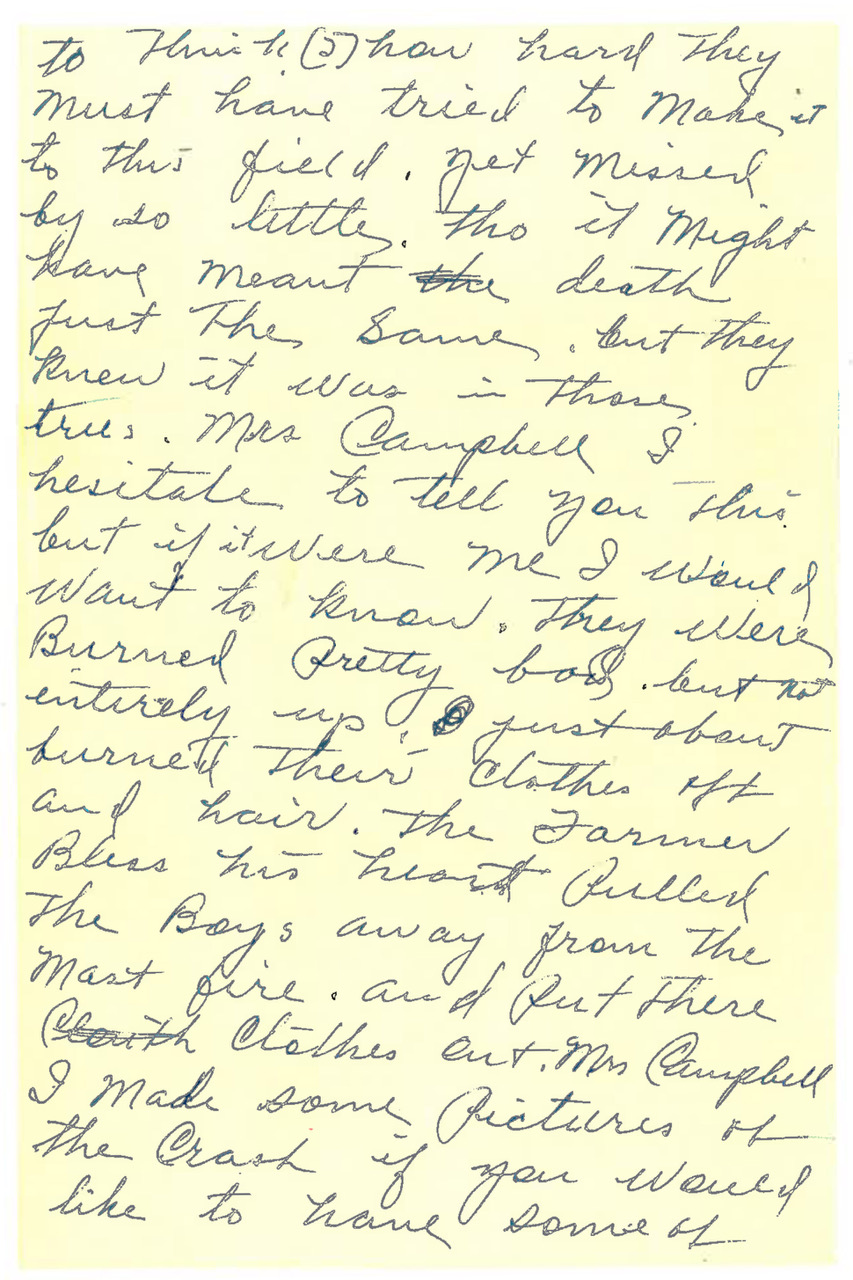 to think (5) how hard They
must have tried to Make it
to this field. yet Missed
by so little. tho it Might
have meant the death
just The Same. but they
knew it was in those
trees. Mrs Campbell I
hesitate to tell you this
but if it Were Me I would
Want to know. They Were
Burned Pretty bad. but not
entirely up. just about
burned their clothes off
and hair. The Farmer
Bless his heart Pulled
The Boys away from the
Most fire. and Put there
Clothes out. Mrs Campbell
I Made some Pictures of
the Crash if you would
like to have some of